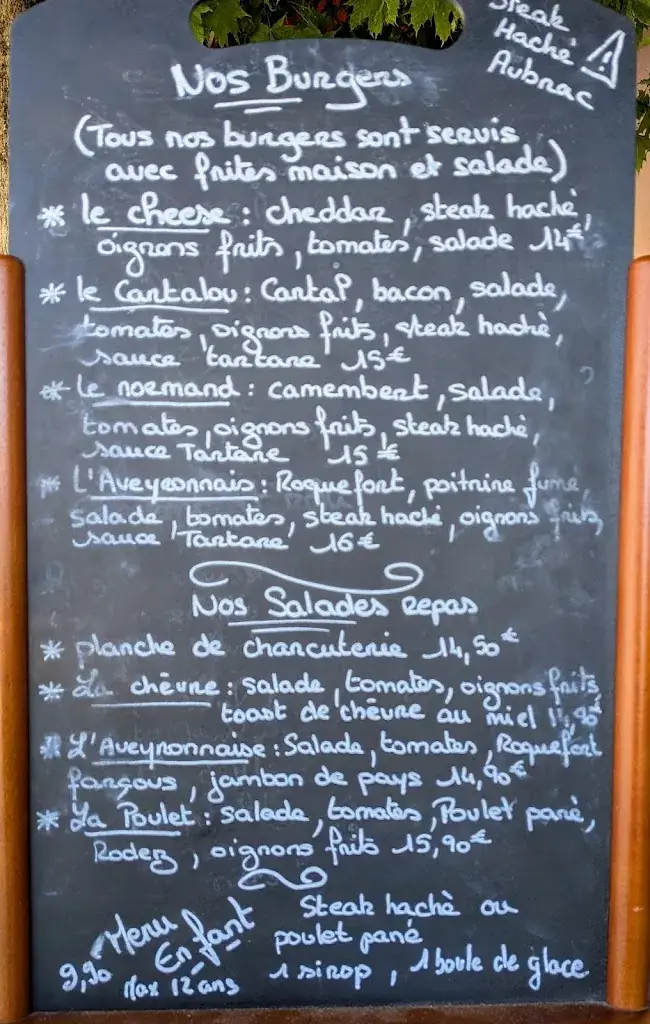 Steak
Haché
Aubrac
Nos Burgers
(Tous nos burgers sont servis
avec frites maison et salade)
* le cheese : cheddar, steak haché,
oignons frits, tomates, salade 14€
* le Cantalou : Cantal, bacon, salade,
tomates, oignons frits, steak haché,
sauce tartare 15€
* le normand : camembert, salade,
tomates, oignons frits, steak haché,
sauce Tartare 15€
* L'Aveyronnais : Roquefort, poitrine fumé,
salade, tomates, steak haché, oignons frits,
sauce Tartare 16€
Nos Salades repas
* planche de charcuterie 14,50€
* La chèvre : salade, tomates, oignons frits
toast de chèvre au miel
* L'Aveyronnaise : Salade, tomates, Roquefort
farçous, jambon de pays 14,90€
* La Poulet : salade, tomates, Poulet pané,
Rodez, oignons frits 15,90€
Menu
Enfant
9,90 Max 12 ans
Steak haché ou
poulet pané
1 sirop, 1 boule de glace